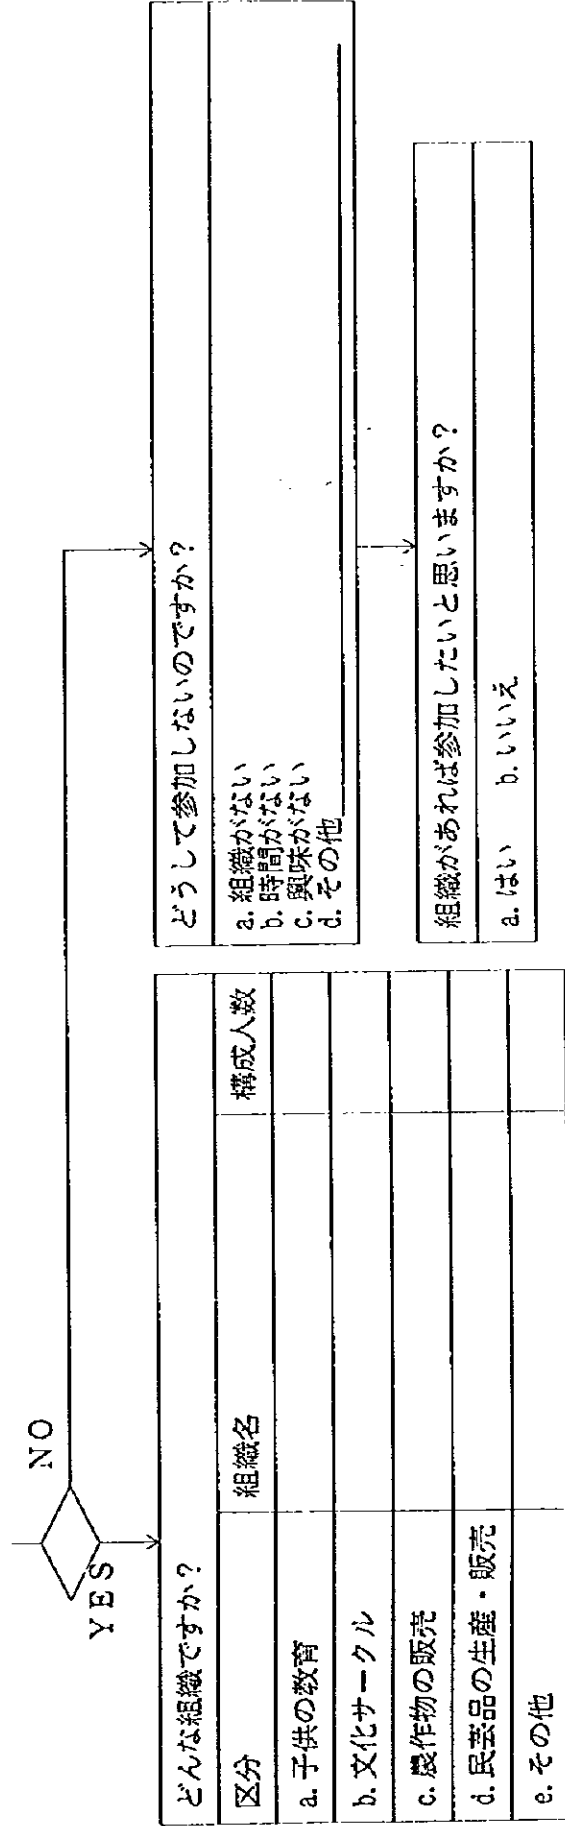 NO
YES
どんな組織ですか?
区分 組織名 構成人数
a. 子供の教育
b. 文化サークル
c. 農作物の販売
d. 民芸品の生産・販売
e. その他
どうして参加しないのですか?
a. 組織がない
b. 時間がない
c. 興味がない
d. その他
組織があれば参加したいと思いますか?
a. はい b. いいえ